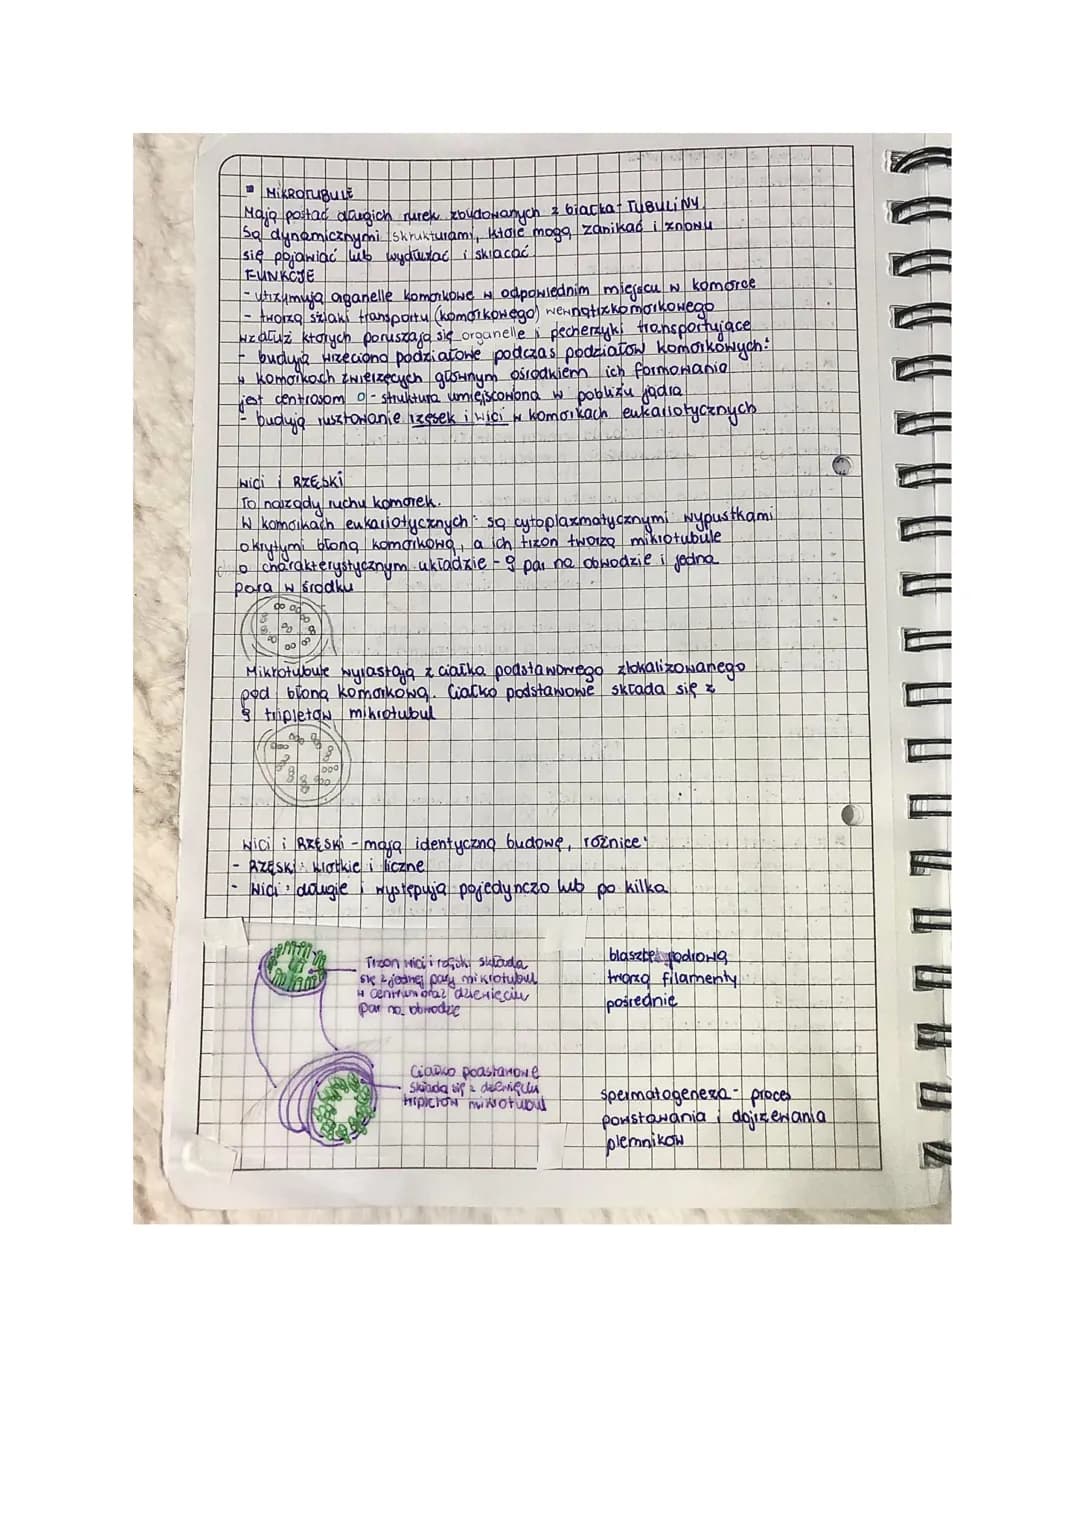 ▪ MIKROTUBULE
Mają postać długich rurek zbudowanych z białka - TUBULINY.
Są dynamicznymi strukturami, które mogą zanikać i znowu
się pojawiać lub wydłużać i skracać.
FUNKCJE
- utrzymują organelle komórkowe w odpowiednim miejscu w komórce
- tworzą szlaki transportu (komórkowego) wewnątrzkomórkowego
wzdłuż których poruszają się organelle i pęcherzyki transportujące
- budują wrzeciono podziałowe podczas podziałów komórkowych:
w komórkach zwierzęcych głównym ośrodkiem ich formowania
jest centrosom o - struktura umiejscowiona w pobliżu jądra
- budują rusztowanie rzęsek i wici w komórkach eukariotycznych
Wici i RZĘSKI
To narządy ruchu komórek.
W komórkach eukariotycznych: są cytoplazmatycznymi wypustkami
okrytymi błoną komórkową, a ich trzon tworzą mikrotubule
o charakterystycznym układzie - 9 par na obwodzie i jedna
para w środku
Mikrotubule wyrastają z ciałka podstawowego zlokalizowanego
pod błoną komórkową. Ciałko podstawowe składa się z
9 tripletów mikrotubul
Wici i RZĘSKI - mają identyczną budowę, różnice:
- RZĘSKI: krótkie i liczne
- Wici: długie i występują pojedynczo lub po kilka
Trzon wici i rzęski składa
się z jednej pary mikrotubul
w centrum oraz dziewięciu
par na obwodzie
Ciałko podstawowe
składa się z dziewięciu
tripletów mikrotubul
blaszkę jądrową
tworzą filamenty
pośrednie
spermatogeneza - proces
powstawania i dojrzewania
plemników